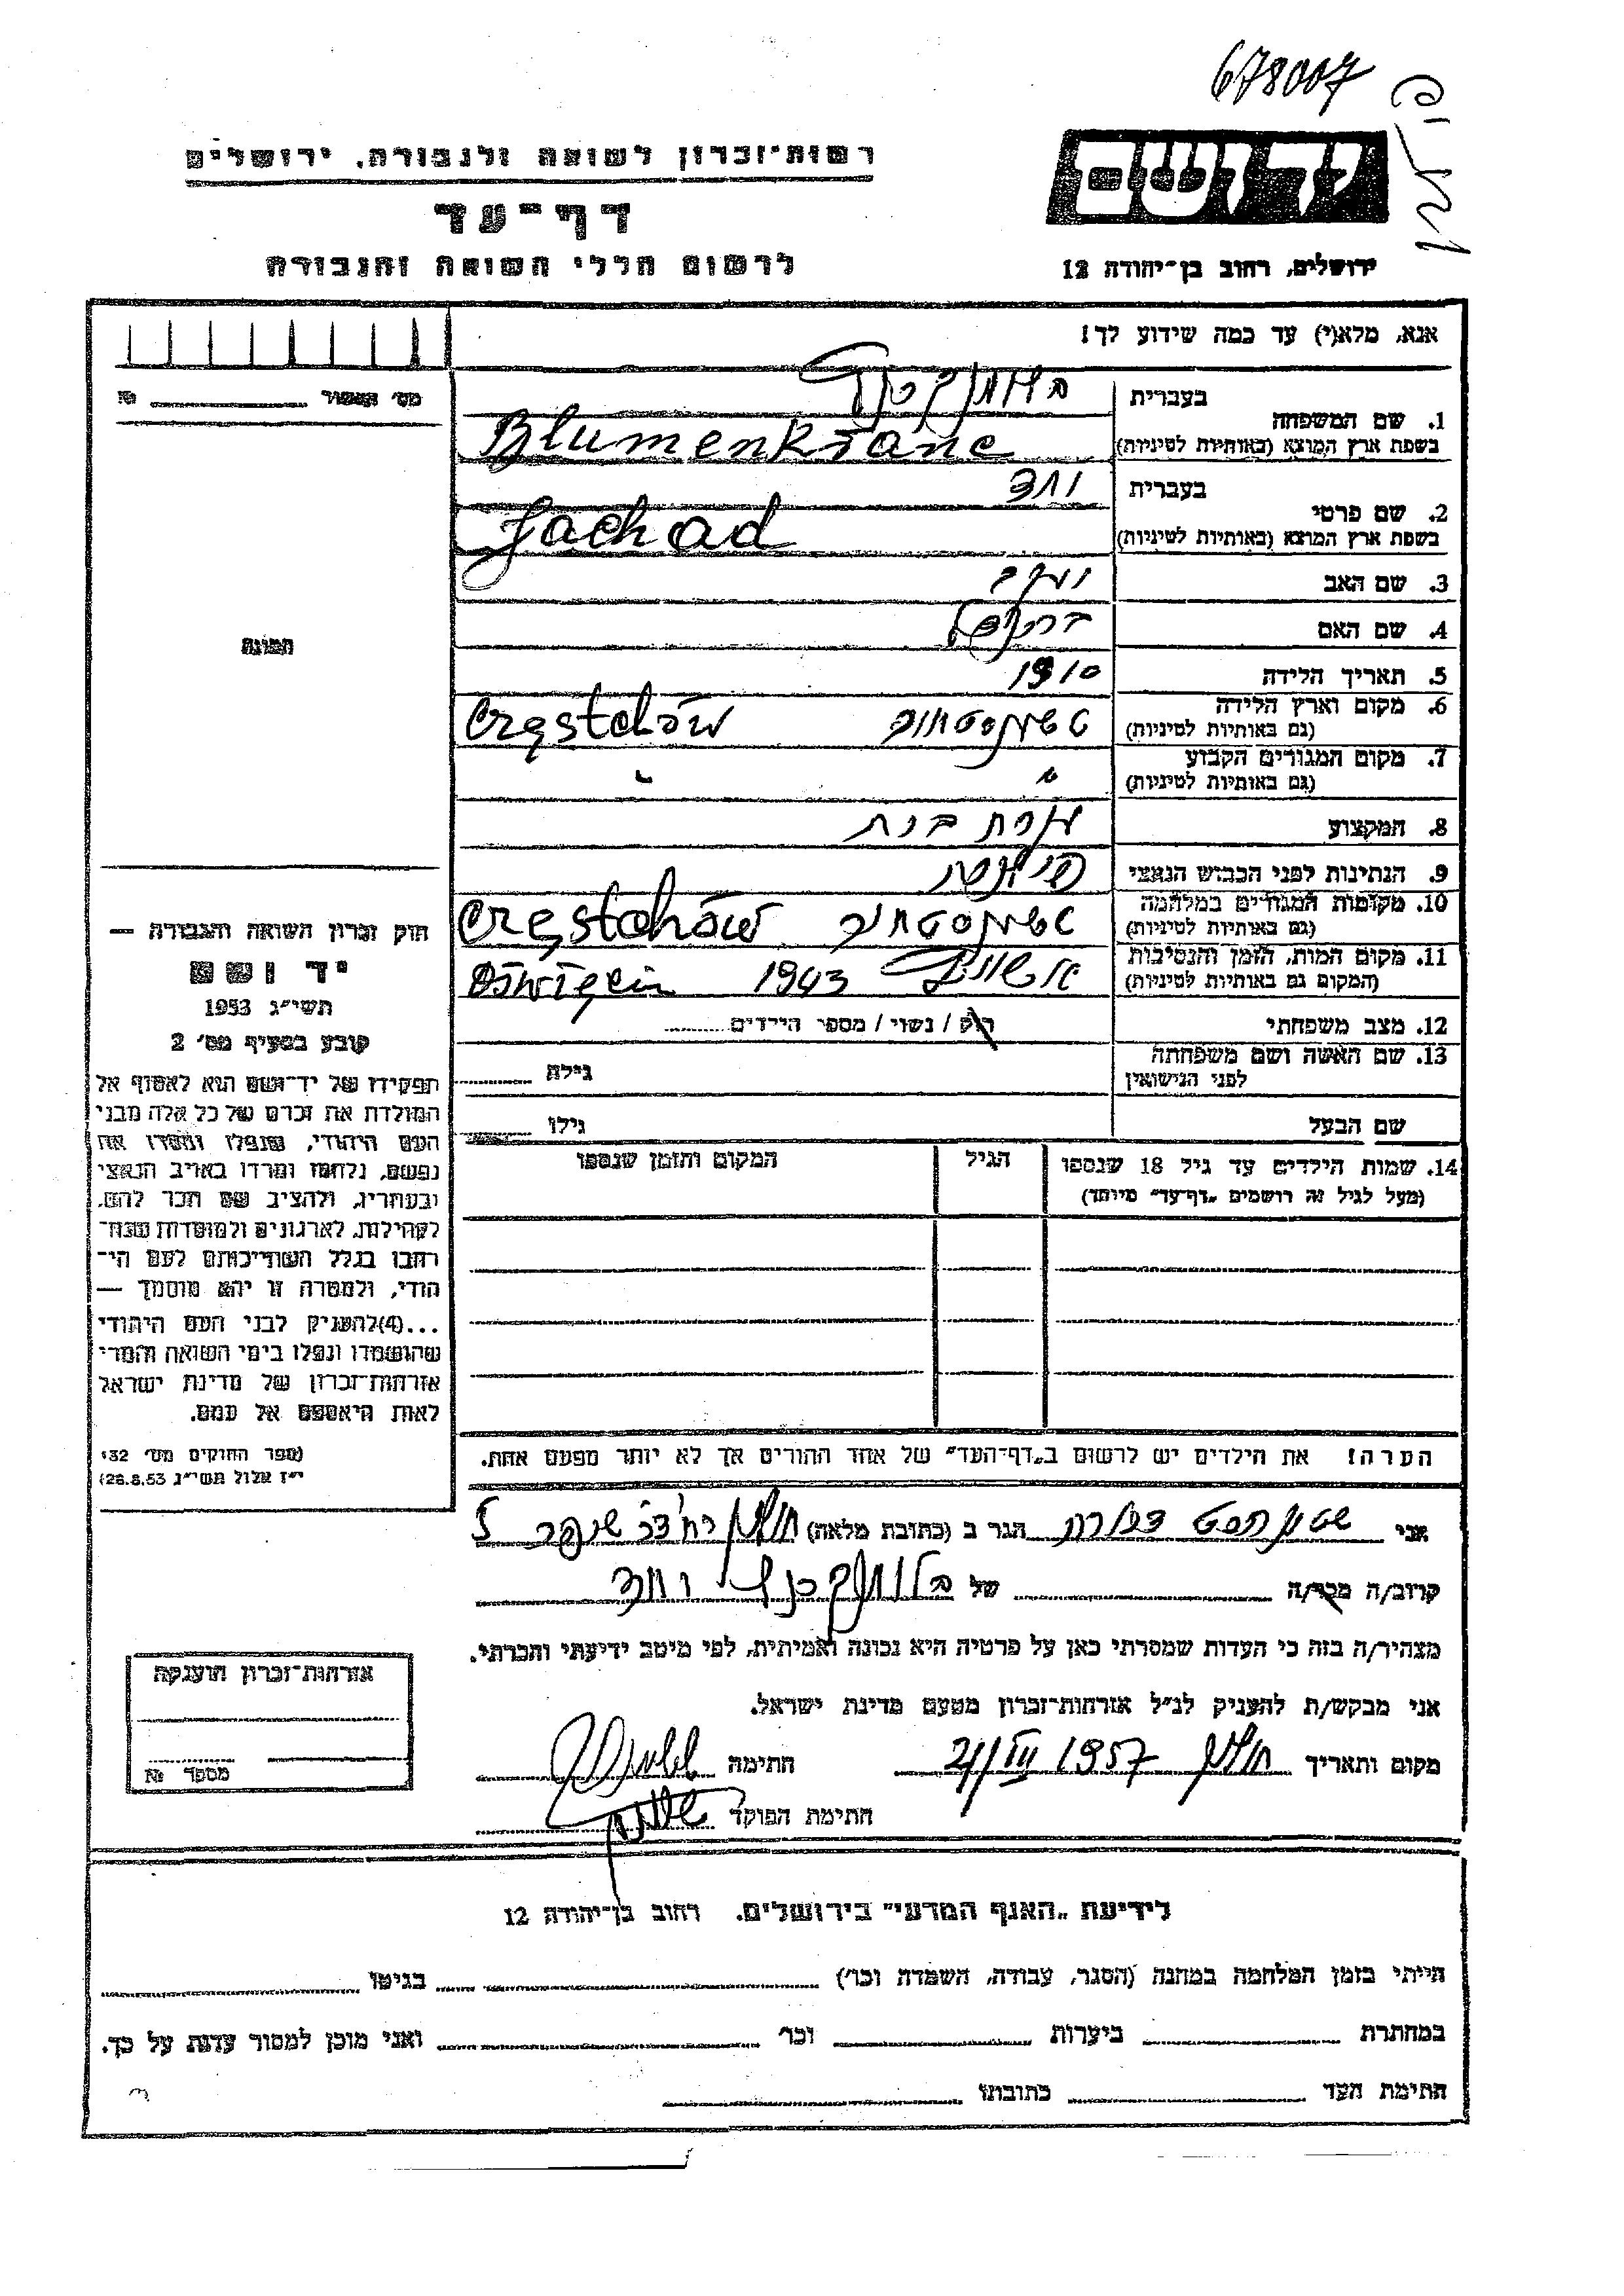 678007
יד ושם
רשות-זכרון לשואה ולגבורה, ירושלים
דף-עד
לרשום חללי השואה והגבורה
ירושלים, רחוב בן-יהודה 12
אנא, מלא(י) עד כמה שידוע לך!
מס' האשור № 
1. שם המשפחה
בעברית
בשפת ארץ המוצא (באותיות לטיניות) Blumenkranc
2. שם פרטי
בעברית יחד
בשפת ארץ המוצא (באותיות לטיניות) Jachad
3. שם האב
4. שם האם
5. תאריך הלידה 1910
6. מקום וארץ הלידה
(גם באותיות לטיניות) טשענסטחוב Częstchów
7. מקום המגורים הקבוע
(גם באותיות לטיניות) " "
8. המקצוע עזרת בנות
9. הנתינות לפני הכבוש הנאצי
10. מקומות המגורים במלחמה
(גם באותיות לטיניות) טשענסטחוב Częstchów
11. מקום המות, הזמן והנסיבות
(המקום גם באותיות לטיניות) אושוויץ 1943 Oświęcin
12. מצב משפחתי רוק / נשוי / מספר הילדים
13. שם האשה ושם משפחתה
לפני הנישואין גילה
שם הבעל גילו
14. שמות הילדים עד גיל 18 שנספו
(מעל לגיל זה רושמים "דף-עד" מיוחד)
הגיל
המקום והזמן שנספו
הערה! את הילדים יש לרשום ב"דף-העד" של אחד ההורים אך לא יותר מפעם אחת.
תמונה
חוק זכרון השואה והגבורה —
יד ושם
תשי"ג 1953
קובע בסעיף מס' 2
תפקידו של יד-ושם הוא לאסוף אל
המולדת את זכרם של כל אלה מבני
העם היהודי, שנפלו ומסרו את
נפשם, נלחמו ומרדו באויב הנאצי
ובעוזריו, ולהציב שם וזכר להם,
לקהילות, לארגונים ולמוסדות שנח-
רבו בגלל השתייכותם לעם הי-
הודי, ולמטרה זו יהא מוסמך —
...(4)להעניק לבני העם היהודי
שהושמדו ונפלו בימי השואה והמרי
אזרחות-זכרון של מדינת ישראל
לאות היאספם אל עמם.
(ספר החוקים מס' 132
י"ז אלול תשי"ג 28.8.53)
אני דבורה הגר ב (כתובת מלאה) חולון 5
קרוב/ה מכר/ה של יחד
מצהיר/ה בזה כי העדות שמסרתי כאן על פרטיה היא נכונה ואמיתית, לפי מיטב ידיעתי והכרתי.
אני מבקש/ת להעניק לנ"ל אזרחות-זכרון מטעם מדינת ישראל.
מקום ותאריך חולון 1957 חתימה
חתימת הפוקד
אזרחות-זכרון הוענקה
מספר №
לידיעת "האגף המדעי" בירושלים. רחוב בן-יהודה 12
הייתי בזמן המלחמה במחנה (הסגר, עבודה, השמדה וכו') בגיטו
במחתרת ביערות וכו' ואני מוכן למסור עדות על כך.
חתימת העד כתובתו